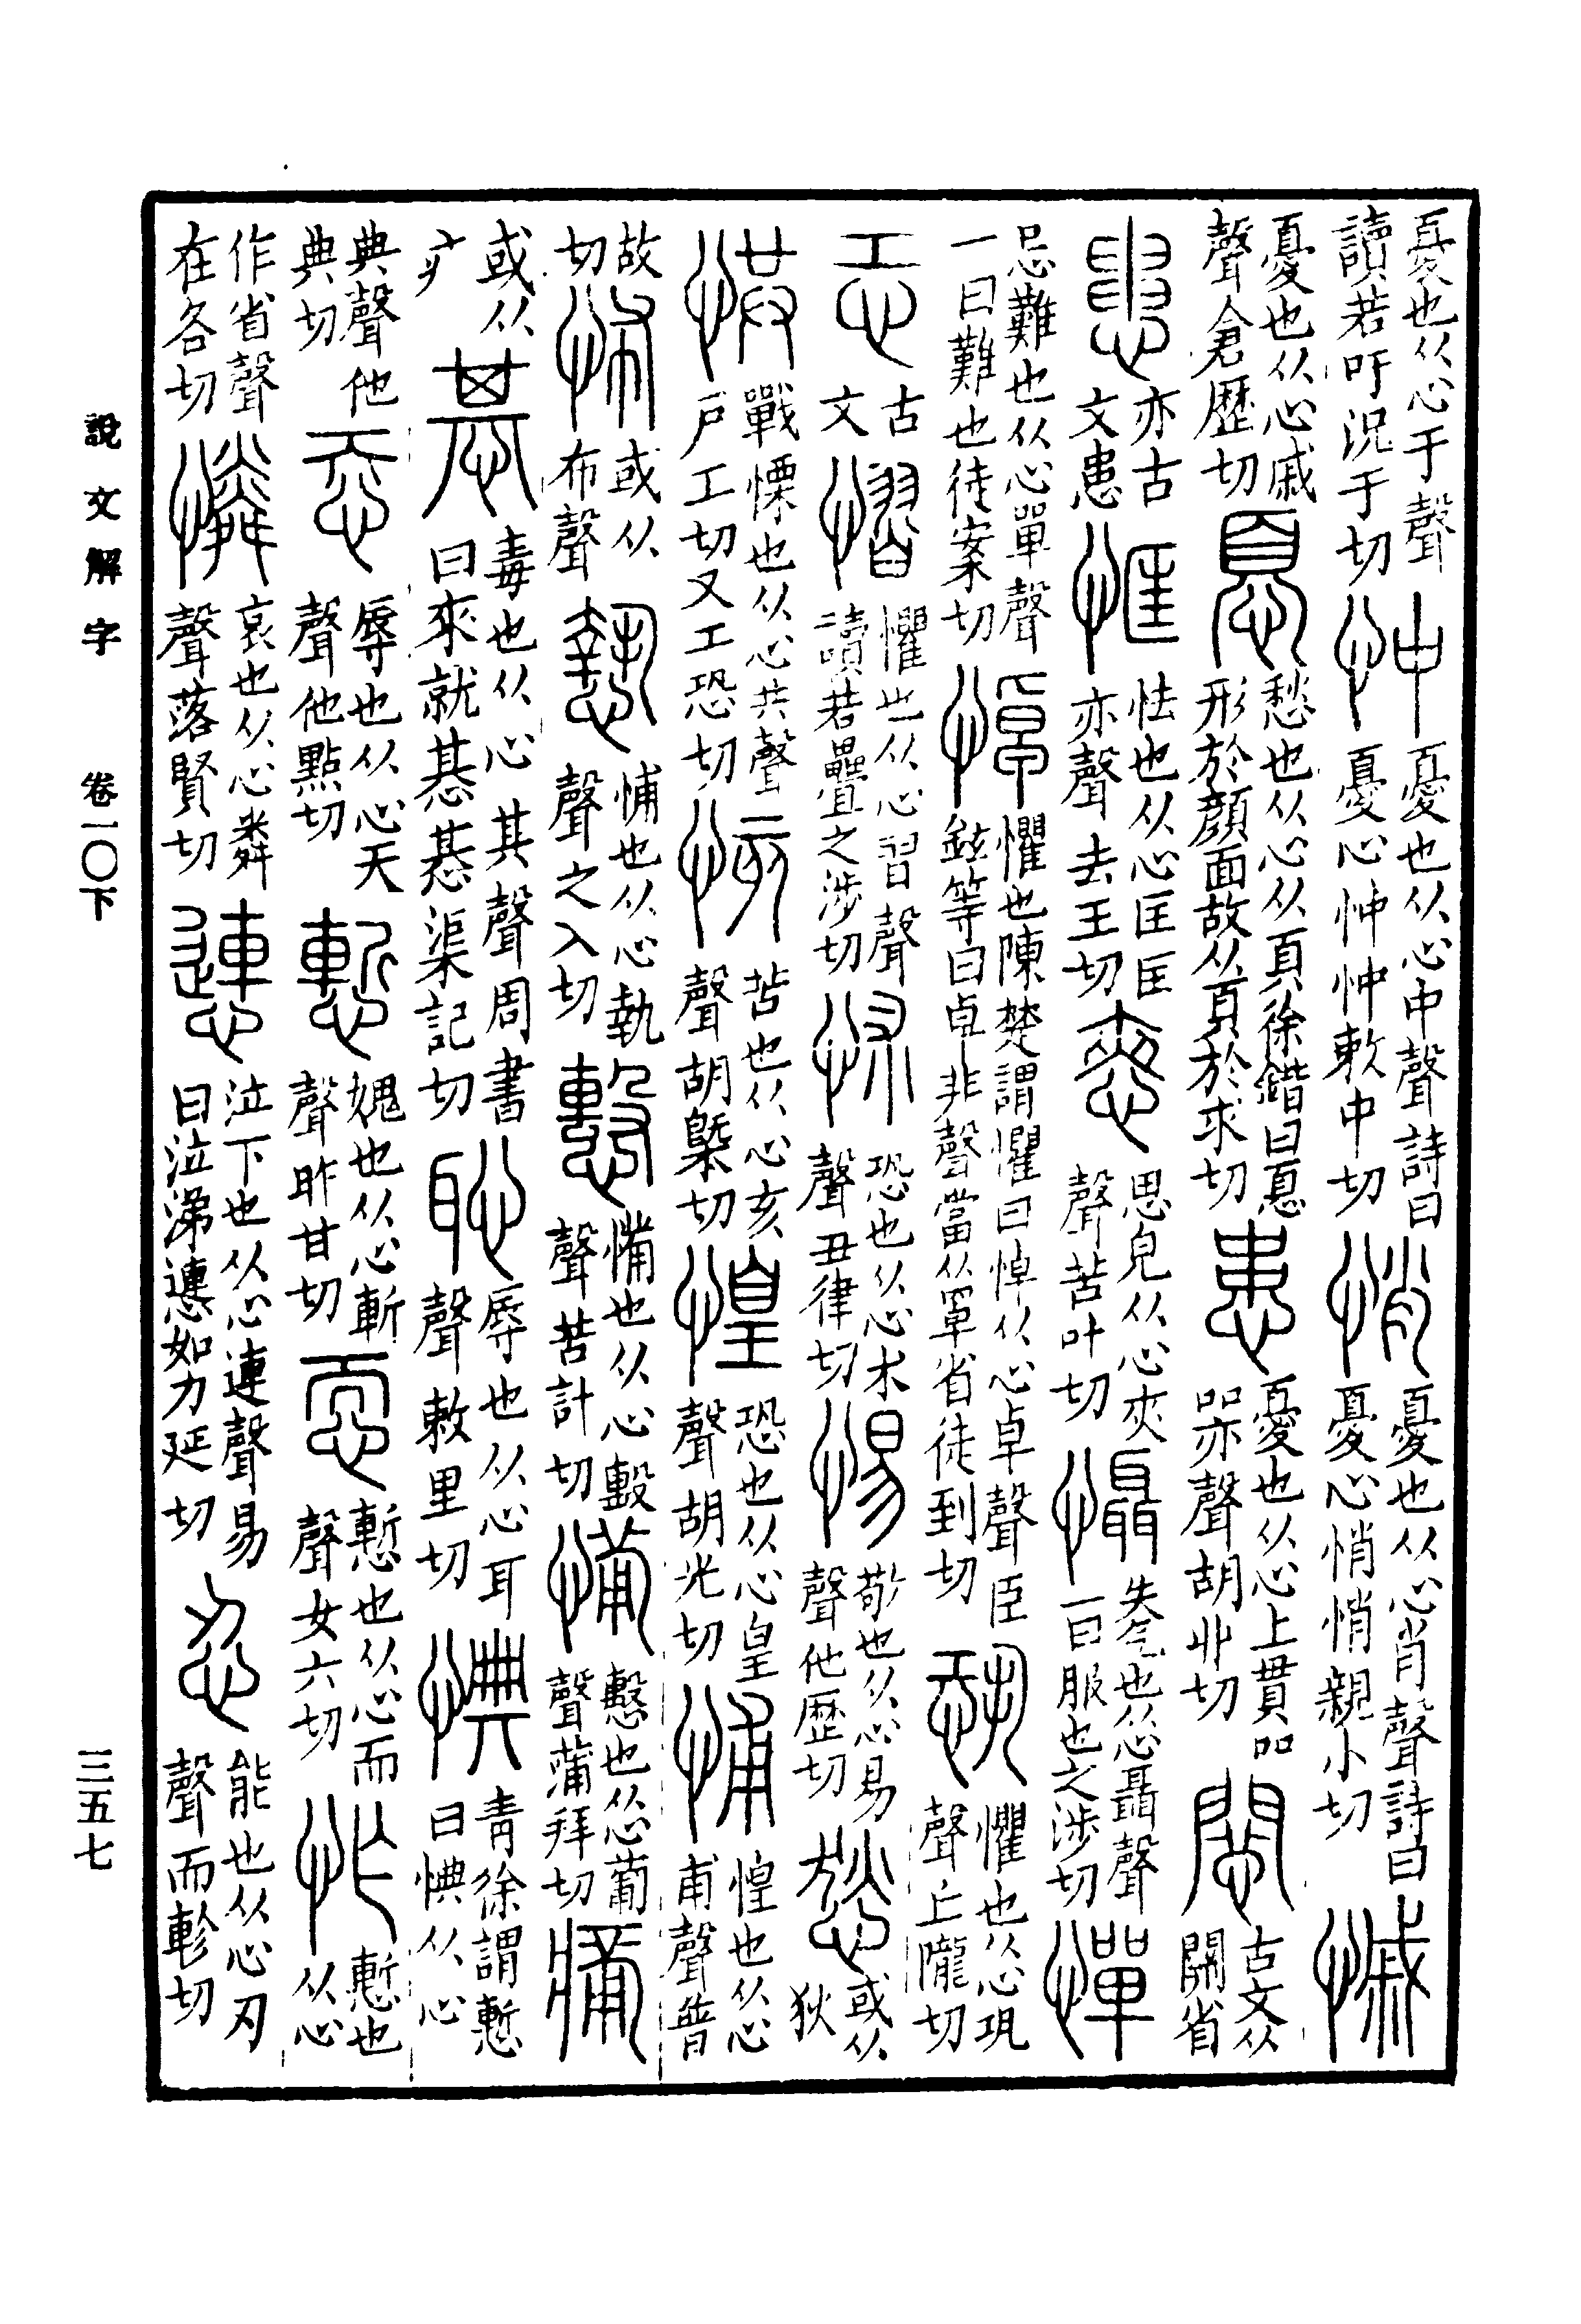 憂也从心于聲讀若吁況于切 忡 憂也从心中聲詩曰憂心忡忡敕中切 悄 憂也从心肖聲詩曰憂心悄悄親小切 慽
憂也从心戚聲倉歷切 㥑 愁也从心从頁徐鍇曰㥑形於顏面故从頁於求切 患 憂也从心上貫吅吅亦聲胡丱切 古文从關省
亦古文患 恇 怯也从心匡匡亦聲去王切 㥦 思皃从心夾聲苦叶切 懾 失气也从心聶聲一曰服也之涉切 憚
忌難也从心單聲一曰難也徒案切 悼 懼也陳楚謂懼曰悼从心卓聲臣鉉等曰卓非聲當从罩省徒到切 恐 懼也从心巩聲丘隴切
㤟 古文 慴 懼也从心習聲讀若疊之涉切 怵 恐也从心朮聲丑律切 惕 敬也从心易聲他歷切 悐 或从狄
㤨 戰慄也从心共聲戶工切又工恐切 㤥 苦也从心亥聲胡槩切 惶 恐也从心皇聲胡光切 悑 惶也从心甫聲普
故切 怖 或从布聲 慹 悑也从心執聲之入切 憿也从心毄聲苦計切 也从心聲蒲拜切
或从疒 惎 毒也从心其聲周書曰來就惎惎渠記切 恥 辱也从心耳聲敕里切 㥏 青徐謂慙曰㥏从心
典聲他典切 忝 辱也从心天聲他點切 慙 媿也从心斬聲昨甘切 恧 慙也从心而聲女六切 怍 慙也从心
作省聲在各切 憐 哀也从心粦聲落賢切 𢣻 泣下也从心連聲易曰泣涕𢣻如力延切 忍 能也从心刃聲而軫切
說文解字 卷一〇下
三五七